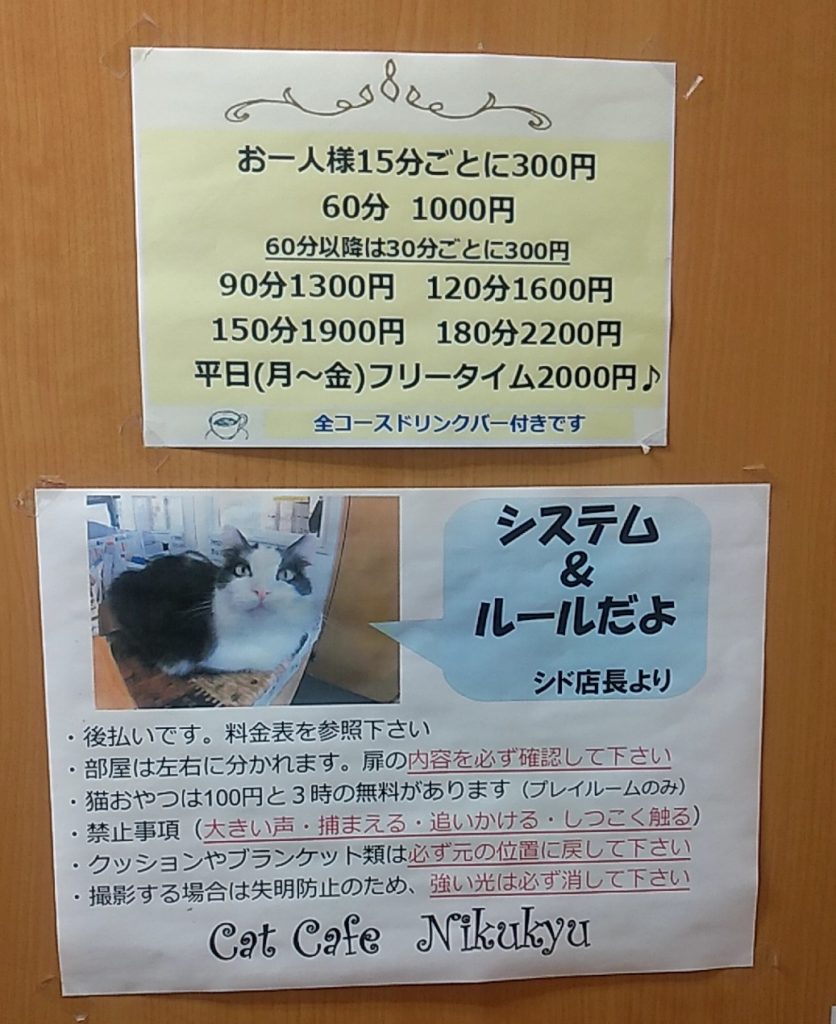 お一人様15分ごとに300円
60分 1000円
60分以降は30分ごとに300円
90分1300円 120分1600円
150分1900円 180分2200円
平日(月～金)フリータイム2000円♪
全コースドリンクバー付きです
システム
&
ルールだよ
シド店長より
・後払いです。料金表を参照下さい
・部屋は左右に分かれます。扉の内容を必ず確認して下さい
・猫おやつは100円と３時の無料があります（プレイルームのみ）
・禁止事項（大きい声・捕まえる・追いかける・しつこく触る）
・クッションやブランケット類は必ず元の位置に戻して下さい
・撮影する場合は失明防止のため、強い光は必ず消して下さい
Cat Cafe Nikukyu